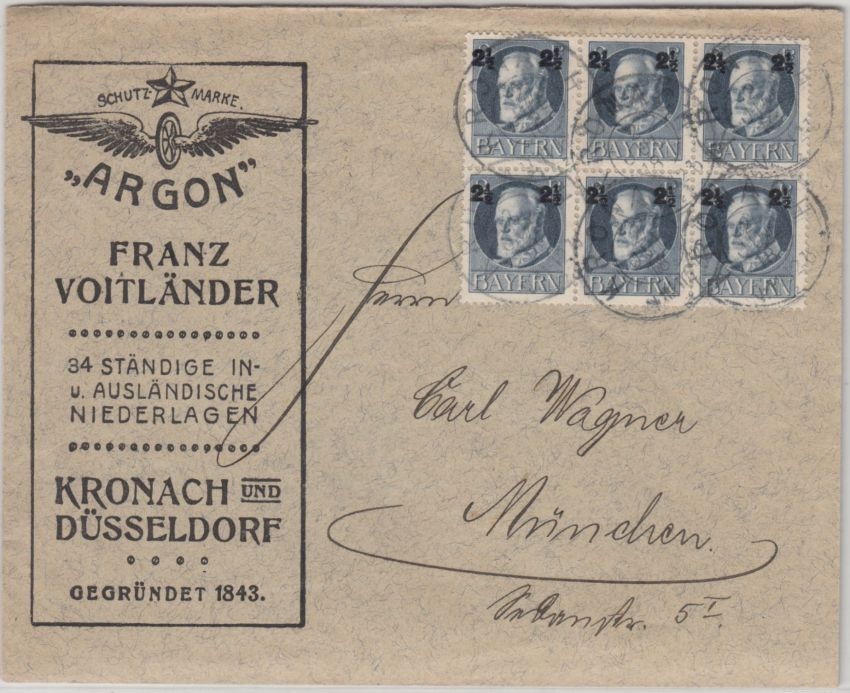 SCHUTZ- MARKE.
„ARGON"
FRANZ
VOITLÄNDER
34 STÄNDIGE IN-
u. AUSLÄNDISCHE
NIEDERLAGEN
KRONACH UND
DÜSSELDORF
GEGRÜNDET 1843.
2½ 2½ 2½ 2½ 2½ 2½
BAYERN BAYERN BAYERN
2½ 2½ 2½ 2½ 2½ 2½
BAYERN BAYERN BAYERN
Herrn
Carl Wagner
München.
Sedanstr. 5 I.